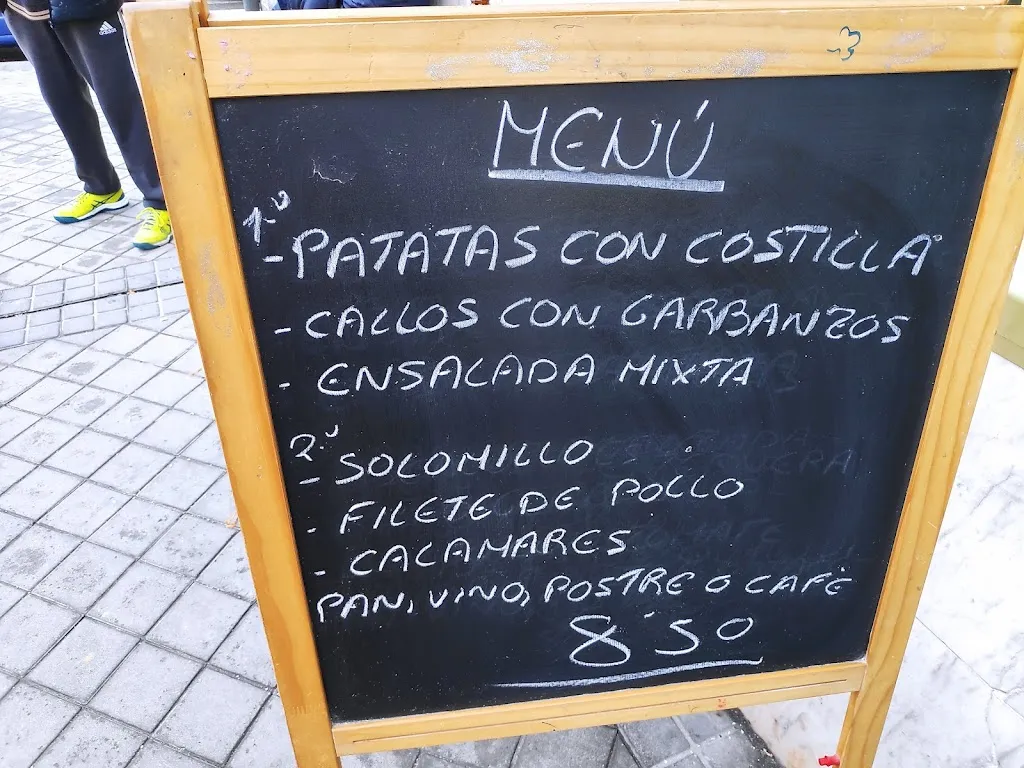 MENÚ
1º
- PATATAS CON COSTILLA
- CALLOS CON GARBANZOS
- ENSALADA MIXTA
2º
- SOLOMILLO
- FILETE DE POLLO
- CALAMARES
PAN, VINO, POSTRE O CAFÉ
8'50
adidas